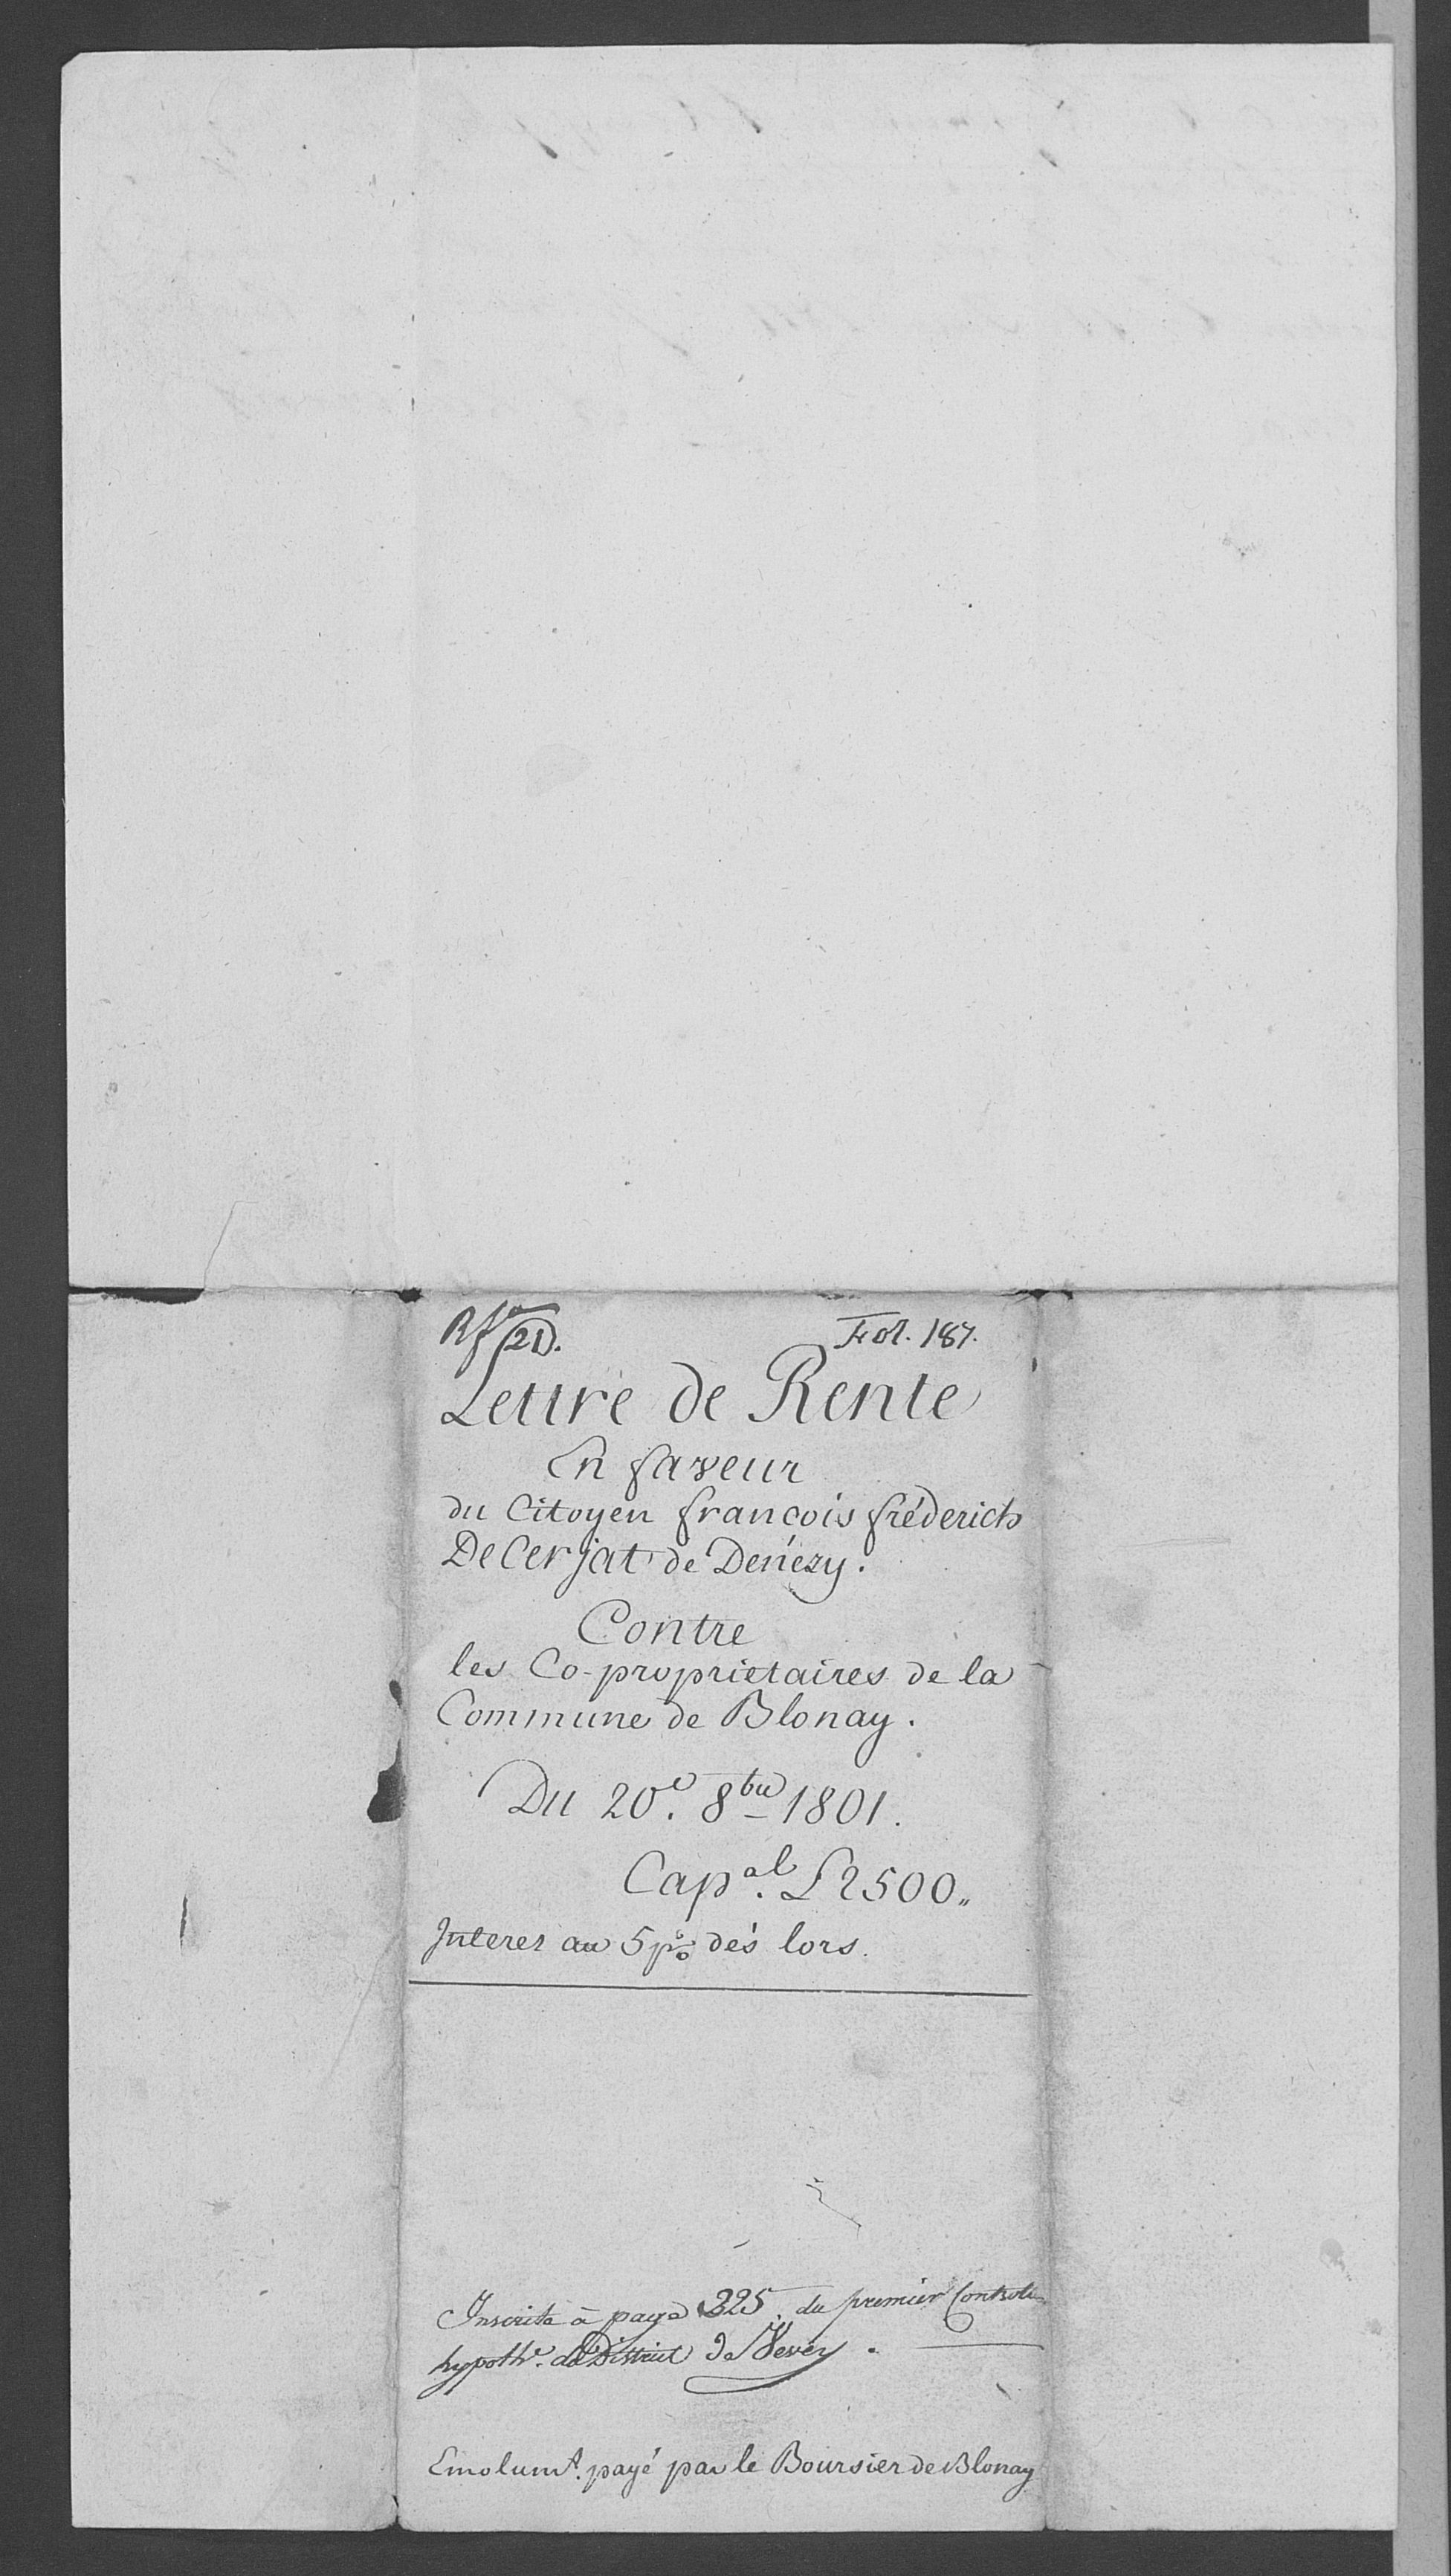 Rf 21. Fol. 187.
Lettre de Rente
En faveur
du Citoyen francois fréderich
De Cerjat de Denézy.
Contre
les Co-proprietaires de la
Commune de Blonay.
Du 20e. 8bre 1801.
Capal. £ 2500„
Interes au 5 p% dés lors.
Inscrite à page 225. du premier Controle
hypothe. du District de Vevey.
Emolumt. payé par le Boursier de Blonay